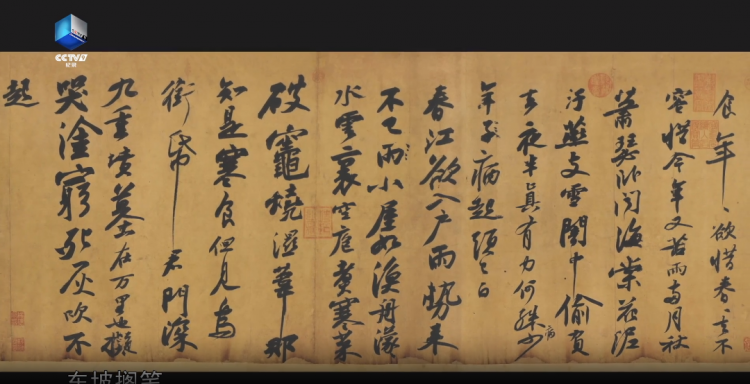 CCTV9
纪录
食年〻欲惜春〻去不
容惜今年又苦雨兩月秋
蕭瑟卧聞海棠花泥
汙燕支雪闇中偷負
去夜半真有力何殊少
病
年子病起須已白
春江欲入戶雨勢来
不已雨小屋如漁舟濛
水雲裏空庖煑寒菜
破竈燒濕葦那
知是寒食但見烏
銜帋君門深
九重墳墓在万里也擬
哭塗窮死灰吹不
起
东坡搁笔